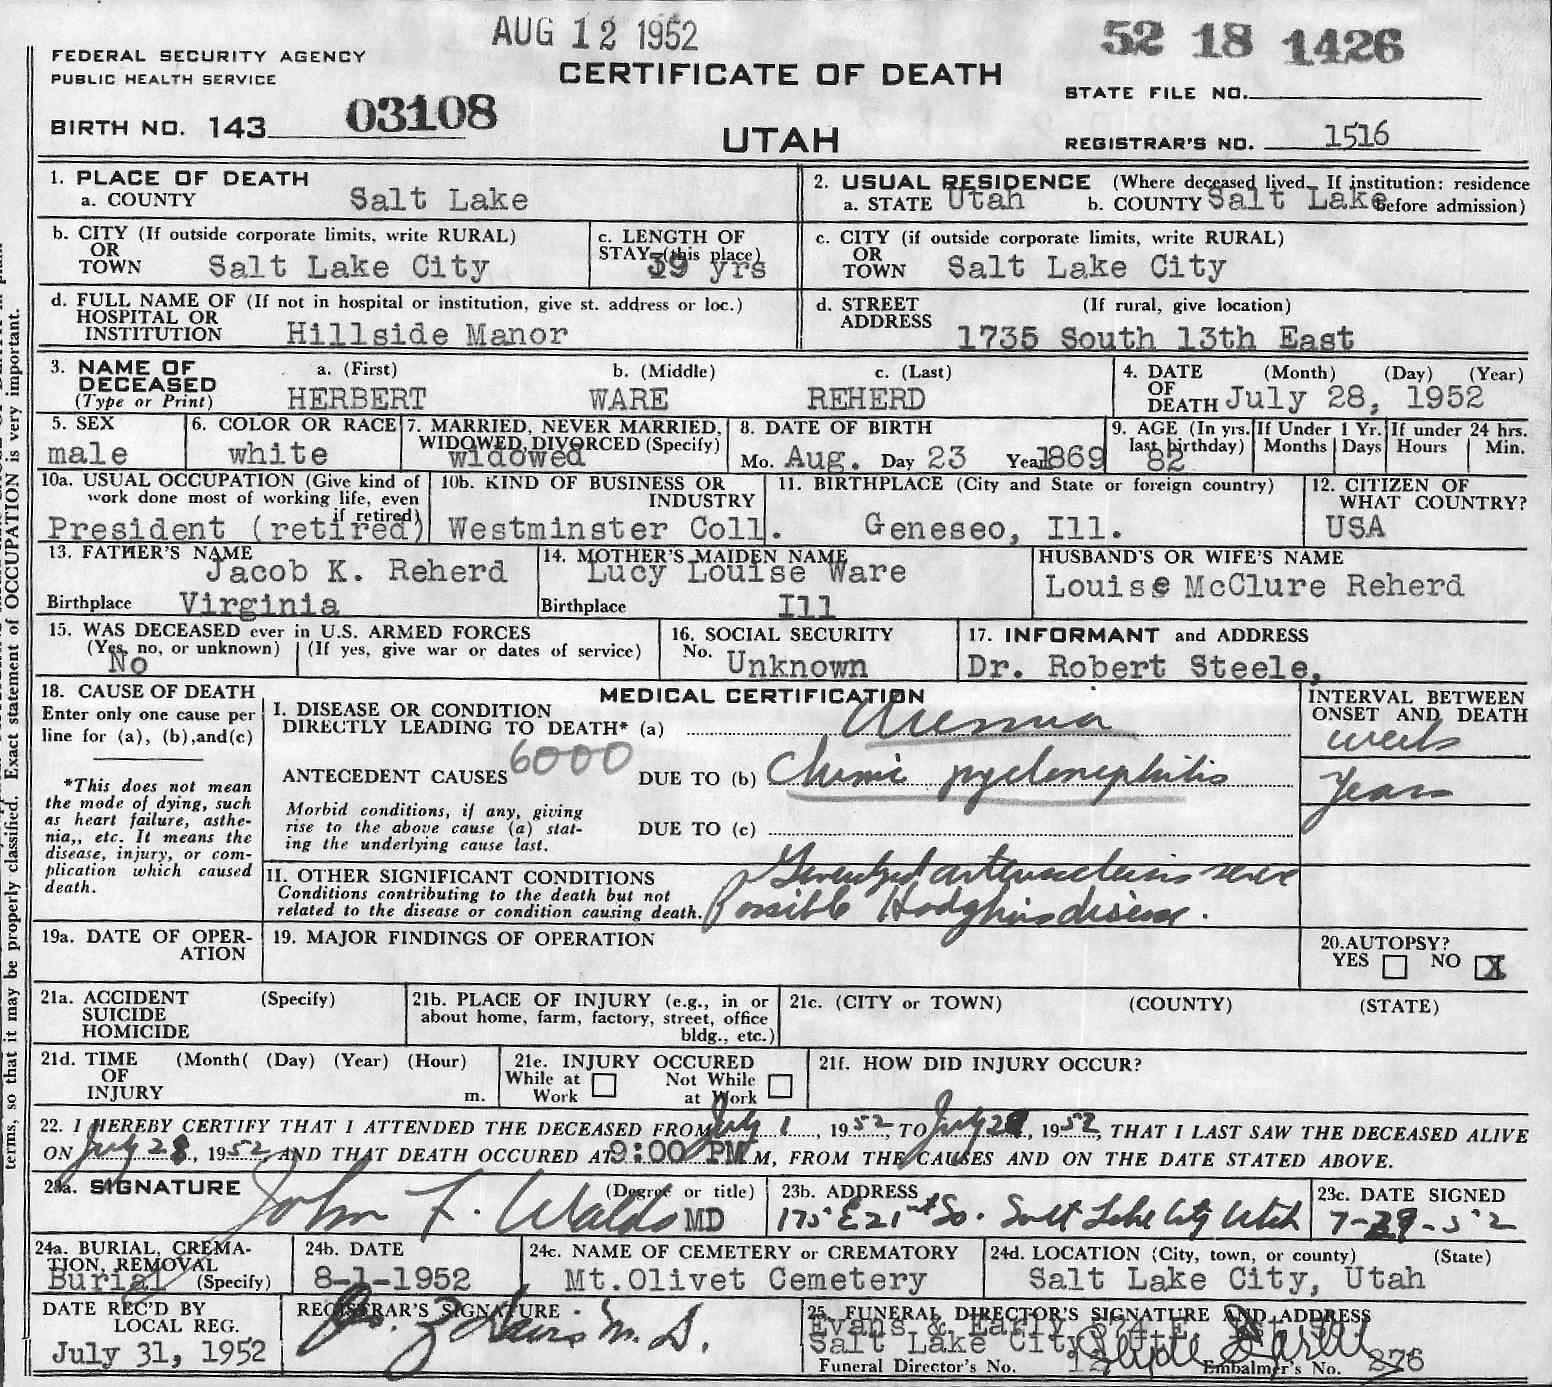 AUG 12 1952
52 18 1426
FEDERAL SECURITY AGENCY
PUBLIC HEALTH SERVICE
CERTIFICATE OF DEATH
STATE FILE NO.
BIRTH NO. 143 03108
UTAH
REGISTRAR'S NO. 1516
1. PLACE OF DEATH
a. COUNTY Salt Lake
2. USUAL RESIDENCE (Where deceased lived. If institution: residence before admission)
a. STATE Utah b. COUNTY Salt Lake
b. CITY (If outside corporate limits, write RURAL)
OR
TOWN Salt Lake City
c. LENGTH OF
STAY (this place)
39 yrs
c. CITY (if outside corporate limits, write RURAL)
OR
TOWN Salt Lake City
d. FULL NAME OF (If not in hospital or institution, give st. address or loc.)
HOSPITAL OR
INSTITUTION Hillside Manor
d. STREET (If rural, give location)
ADDRESS 1735 South 13th East
3. NAME OF
DECEASED
(Type or Print)
a. (First) b. (Middle) c. (Last)
HERBERT WARE REHERD
4. DATE (Month) (Day) (Year)
OF
DEATH July 28, 1952
5. SEX
male
6. COLOR OR RACE
white
7. MARRIED, NEVER MARRIED,
WIDOWED, DIVORCED (Specify)
widowed
8. DATE OF BIRTH
Mo. Aug. Day 23 Year 1869
9. AGE (In yrs. last birthday)
82
If Under 1 Yr.
Months Days
If under 24 hrs.
Hours Min.
10a. USUAL OCCUPATION (Give kind of
work done most of working life, even
if retired)
President (retired)
10b. KIND OF BUSINESS OR
INDUSTRY
Westminster Coll.
11. BIRTHPLACE (City and State or foreign country)
Geneseo, Ill.
12. CITIZEN OF
WHAT COUNTRY?
USA
13. FATHER'S NAME
Jacob K. Reherd
Birthplace Virginia
14. MOTHER'S MAIDEN NAME
Lucy Louise Ware
Birthplace Ill
HUSBAND'S OR WIFE'S NAME
Louise McClure Reherd
15. WAS DECEASED ever in U.S. ARMED FORCES
(Yes, no, or unknown) (If yes, give war or dates of service)
No
16. SOCIAL SECURITY
No. Unknown
17. INFORMANT and ADDRESS
Dr. Robert Steele,
18. CAUSE OF DEATH
Enter only one cause per
line for (a), (b),and(c)
*This does not mean
the mode of dying, such
as heart failure, asthe-
nia,, etc. It means the
disease, injury, or com-
plication which caused
death.
MEDICAL CERTIFICATION
I. DISEASE OR CONDITION
DIRECTLY LEADING TO DEATH* (a) Uremia
6000
ANTECEDENT CAUSES DUE TO (b) Chronic pyelonephritis
Morbid conditions, if any, giving
rise to the above cause (a) stat-
ing the underlying cause last.
DUE TO (c)
II. OTHER SIGNIFICANT CONDITIONS
Conditions contributing to the death but not
related to the disease or condition causing death.
Generalized arteriosclerosis severe
Possible Hodgkins disease.
INTERVAL BETWEEN
ONSET AND DEATH
weeks
Years
19a. DATE OF OPER-
ATION
19. MAJOR FINDINGS OF OPERATION
20.AUTOPSY?
YES NO X
21a. ACCIDENT (Specify)
SUICIDE
HOMICIDE
21b. PLACE OF INJURY (e.g., in or
about home, farm, factory, street, office
bldg., etc.)
21c. (CITY or TOWN) (COUNTY) (STATE)
21d. TIME (Month( (Day) (Year) (Hour)
OF
INJURY m.
21e. INJURY OCCURED
While at Work Not While at Work
21f. HOW DID INJURY OCCUR?
22. I HEREBY CERTIFY THAT I ATTENDED THE DECEASED FROM July 1, 1952, TO July 28, 1952, THAT I LAST SAW THE DECEASED ALIVE
ON July 28, 1952, AND THAT DEATH OCCURED AT 9:00 PM M, FROM THE CAUSES AND ON THE DATE STATED ABOVE.
23a. SIGNATURE (Degree or title)
John F. Waldo MD
23b. ADDRESS
175 E 21st So. Salt Lake City Utah
23c. DATE SIGNED
7-29-52
24a. BURIAL, CREMA-
TION, REMOVAL
Burial (Specify)
24b. DATE
8-1-1952
24c. NAME OF CEMETERY or CREMATORY
Mt.Olivet Cemetery
24d. LOCATION (City, town, or county) (State)
Salt Lake City, Utah
DATE REC'D BY
LOCAL REG.
July 31, 1952
REGISTRAR'S SIGNATURE
M. D.
25. FUNERAL DIRECTOR'S SIGNATURE AND ADDRESS
Evans & Early 574 E.
Salt Lake City
Funeral Director's No. Embalmer's No. 276
terms, so that it may be properly classified. Exact statement of OCCUPATION is very important.